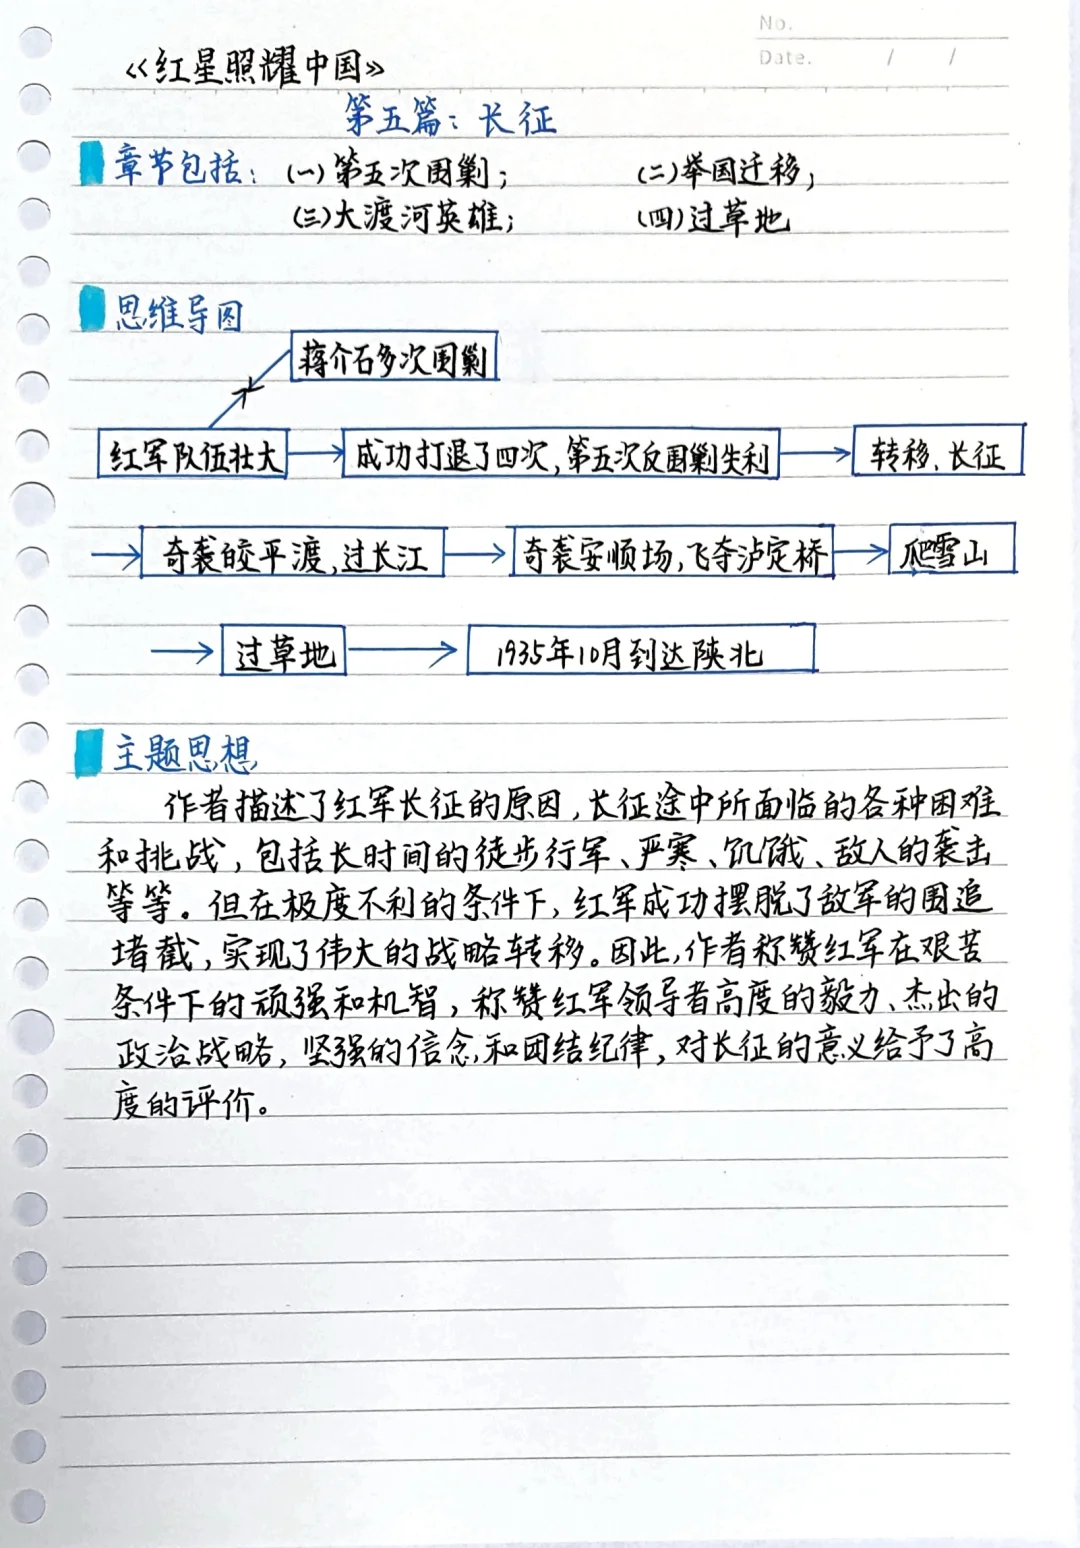 No.
Date.      /      /
《红星照耀中国》
第五篇：长征
章节包括：(一)第五次围剿；  (二)举国迁移；
(三)大渡河英雄；  (四)过草地
思维导图
蒋介石多次围剿
红军队伍壮大 → 成功打退了四次,第五次反围剿失利 → 转移、长征
→ 奇袭皎平渡,过长江 → 奇袭安顺场,飞夺泸定桥 → 爬雪山
→ 过草地 → 1935年10月到达陕北
主题思想
作者描述了红军长征的原因,长征途中所面临的各种困难
和挑战,包括长时间的徒步行军、严寒、饥饿、敌人的袭击
等等。但在极度不利的条件下,红军成功摆脱了敌军的围追
堵截,实现了伟大的战略转移。因此,作者称赞红军在艰苦
条件下的顽强和机智,称赞红军领导者高度的毅力、杰出的
政治战略,坚强的信念,和团结纪律,对长征的意义给予了高
度的评价。